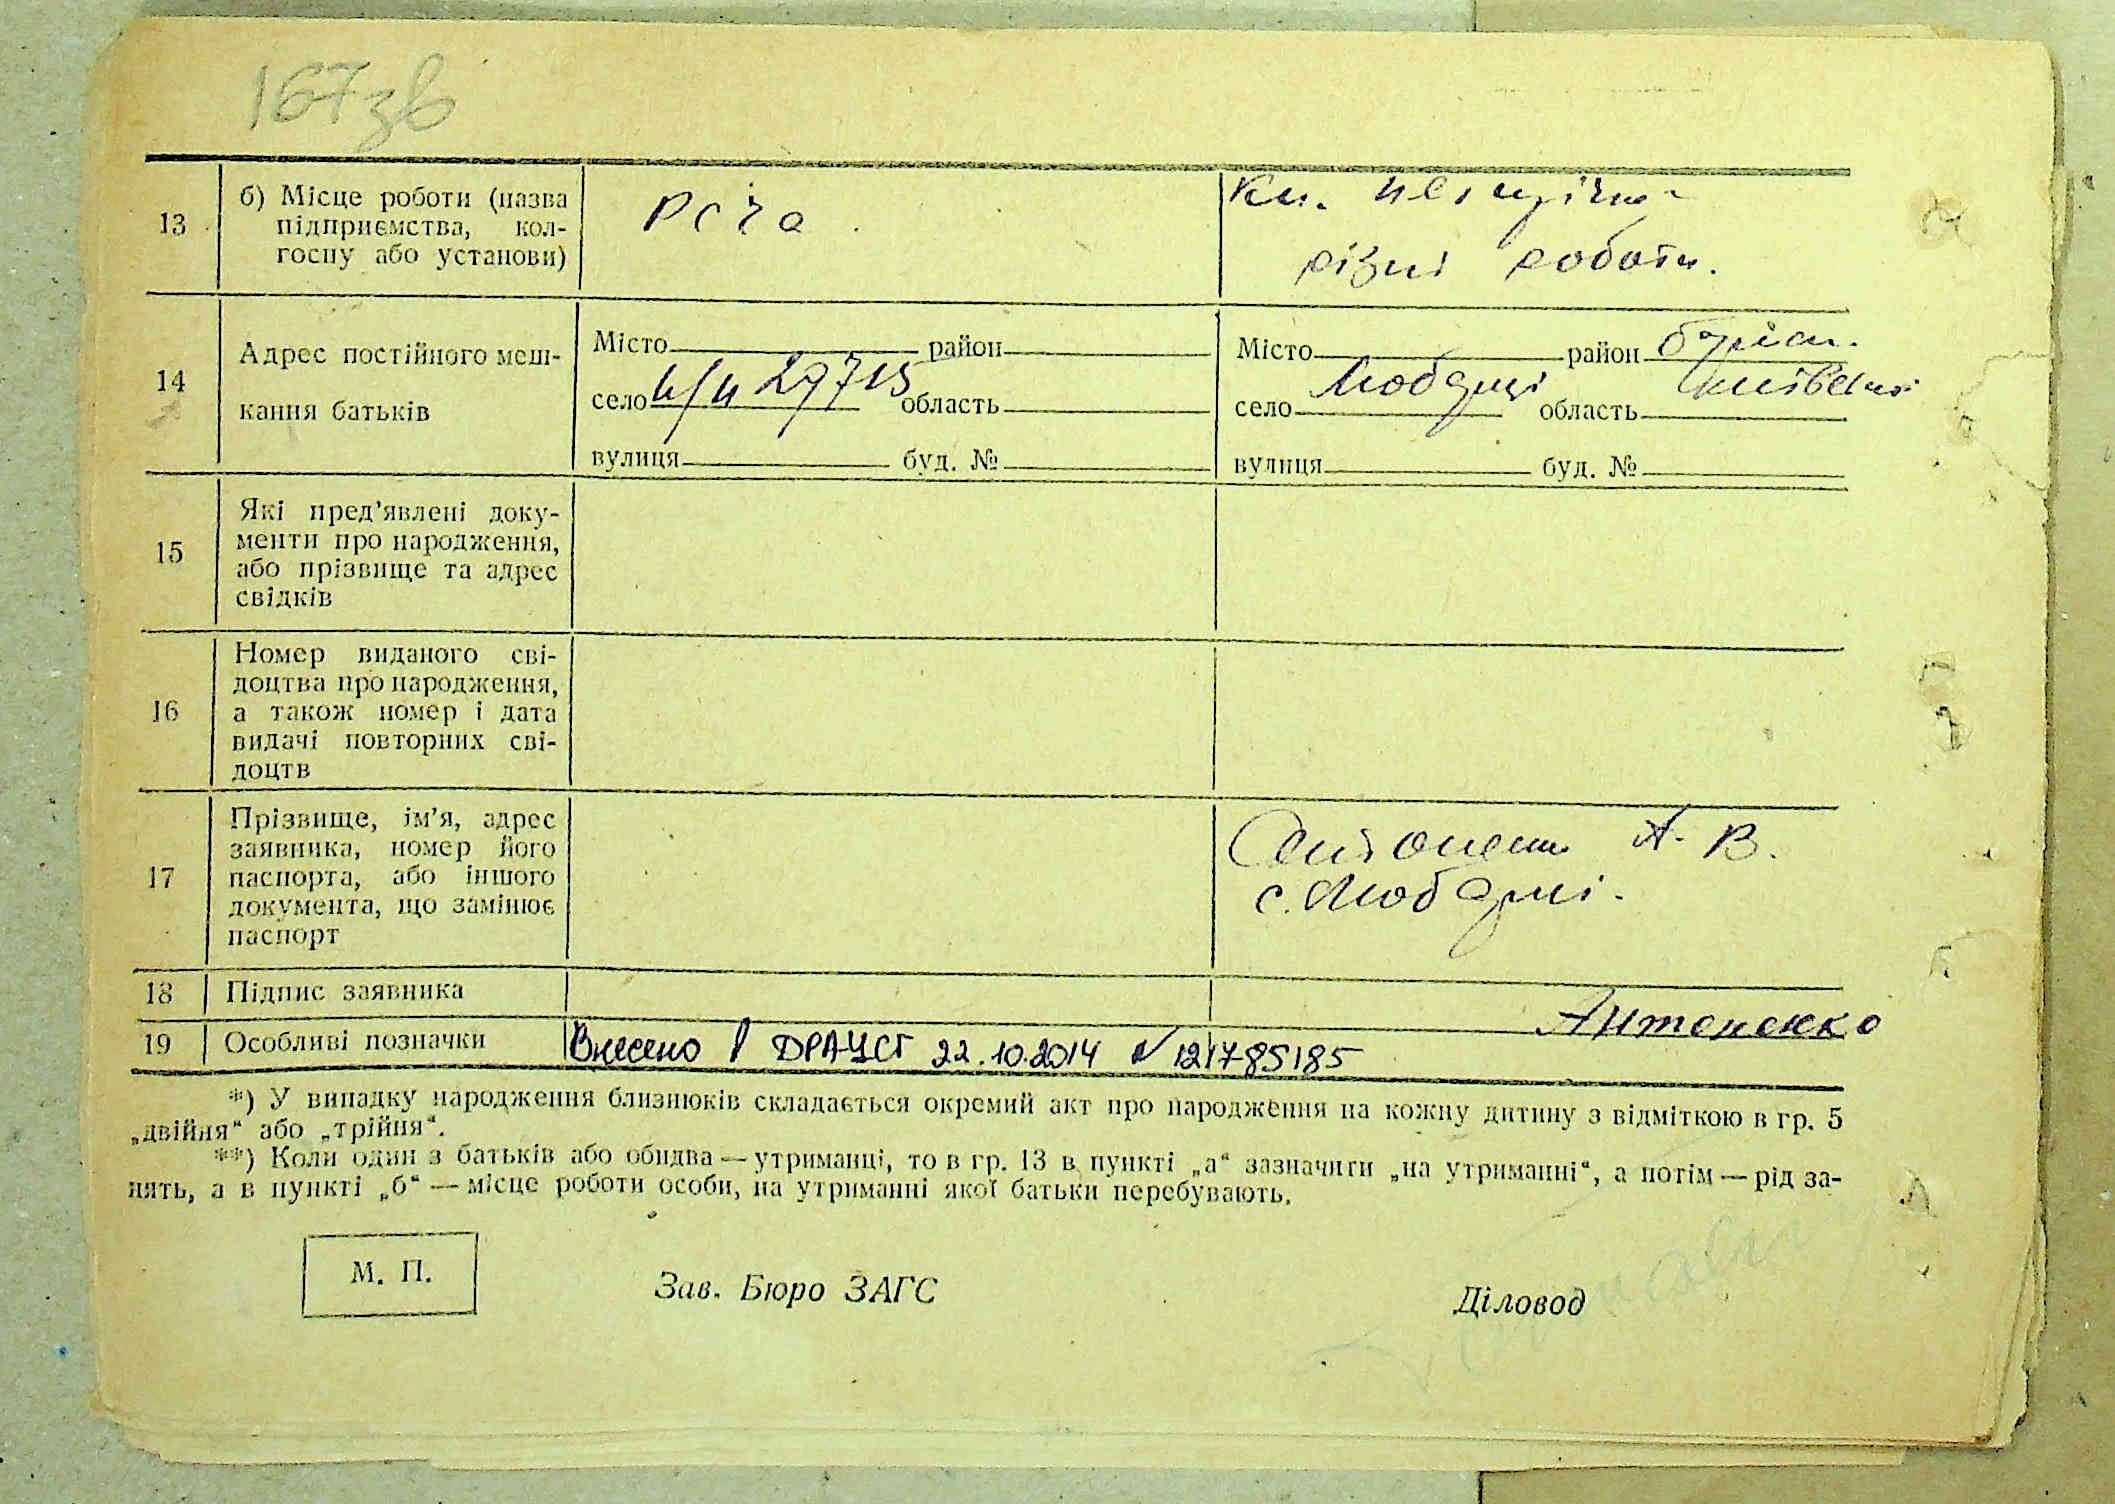 167зв
13
б) Місце роботи (назва
підприємства, кол-
госпу або установи)
РСЧА
Кол.
різні роботи.
14
Адрес постійного меш-
кання батьків
Місто район
село п/п 29715 область
вулиця буд. №
Місто район
село Любарці область Київської
вулиця буд. №
15
Які пред'явлені доку-
менти про народження,
або прізвище та адрес
свідків
16
Номер виданого сві-
доцтва про народження,
а також номер і дата
видачі повторних сві-
доцтв
17
Прізвище, ім'я, адрес
заявника, номер його
паспорта, або іншого
документа, що замінює
паспорт
Антоненко А. В.
с. Любарці.
18
Підпис заявника
Антоненко
19
Особливі позначки
Внесено в ДРАЦСГ 22.10.2014 № 121785185
*) У випадку народження близнюків складається окремий акт про народження на кожну дитину з відміткою в гр. 5
„двійня“ або „трійня“.
**) Коли один з батьків або обидва — утриманці, то в гр. 13 в пункті „а“ зазначити „на утриманні“, а потім — рід за-
нять, а в пункті „б“ — місце роботи особи, на утриманні якої батьки перебувають.
М. П.
Зав. Бюро ЗАГС
Діловод